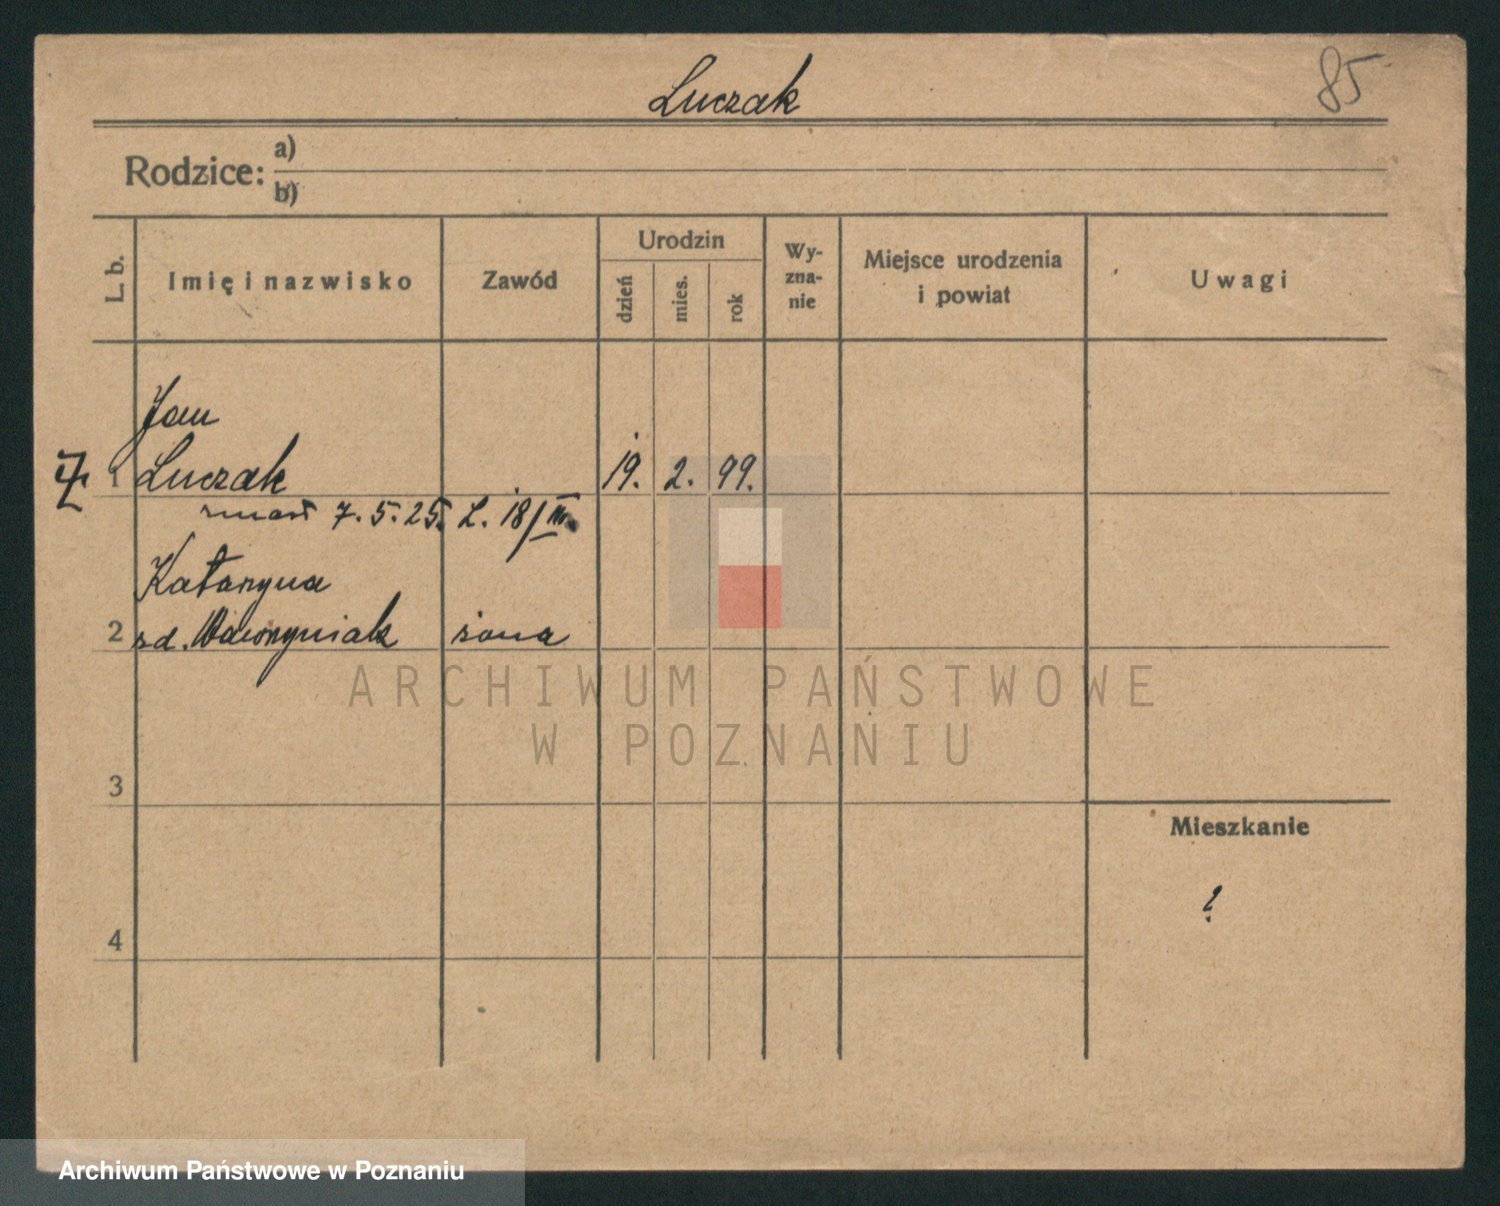 Luczak
85
Rodzice: a)
b)
L. b.
Imię i nazwisko
Zawód
Urodzin
dzień
mies.
rok
Wy-
zna-
nie
Miejsce urodzenia
i powiat
Uwagi
Jan
1 Luczak 19. 2. 99.
zmarł 7. 5. 25. L. 18/III.
Katarzyna
2 zd. Wawrzyniak żona
ARCHIWUM PAŃSTWOWE
W POZNANIU
3
Mieszkanie
?
4
Archiwum Państwowe w Poznaniu